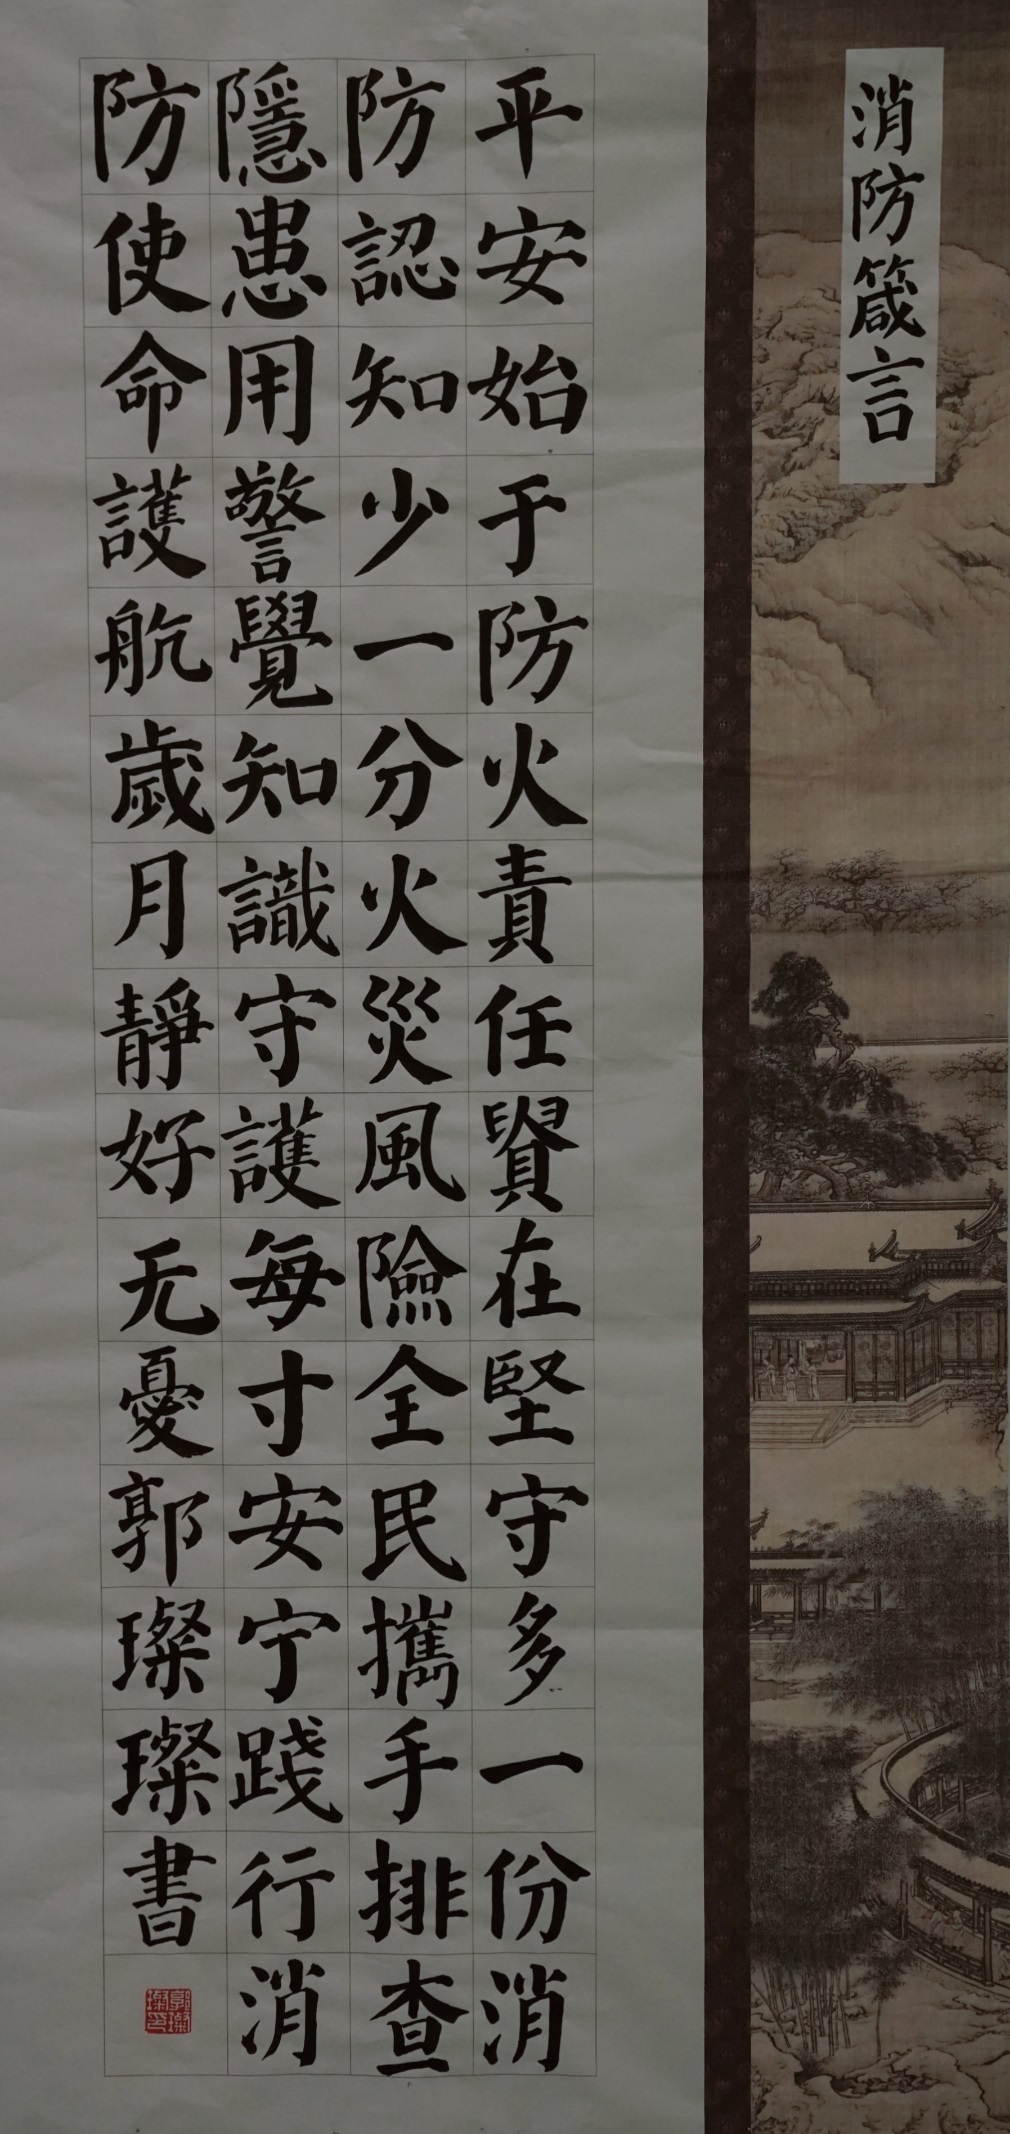 消防箴言
平安始于防火責任賢在堅守多一份消
防認知少一分火災風險全民攜手排查
隱患用警覺知識守護每寸安宁踐行消
防使命護航歲月靜好无憂郭璨璨書
郭璨璨印